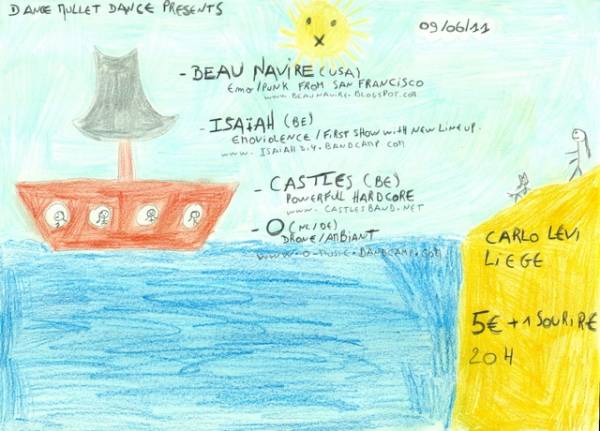 DANCE MULLET DANCE PRESENTS
09/06/11
- BEAU NAVIRE (USA)
EMO/PUNK FROM SAN FRANCISCO
WWW.BEAUNAVIRE.BLOGSPOT.COM
- ISAÏAH (BE)
EMOVIOLENCE / FIRST SHOW WITH NEW LINE UP.
WWW. ISAIAH2.4.BANDCAMP.COM
- CASTLES (BE)
POWERFUL HARDCORE
WWW. CASTLESBAND.NET
- O (NL/DE)
DRONE/AMBIANT
WWW.O-MUSIC.BANDCAMP.COM
CARLO LEVI
LIEGE
5€ + 1 SOURIRE
20H